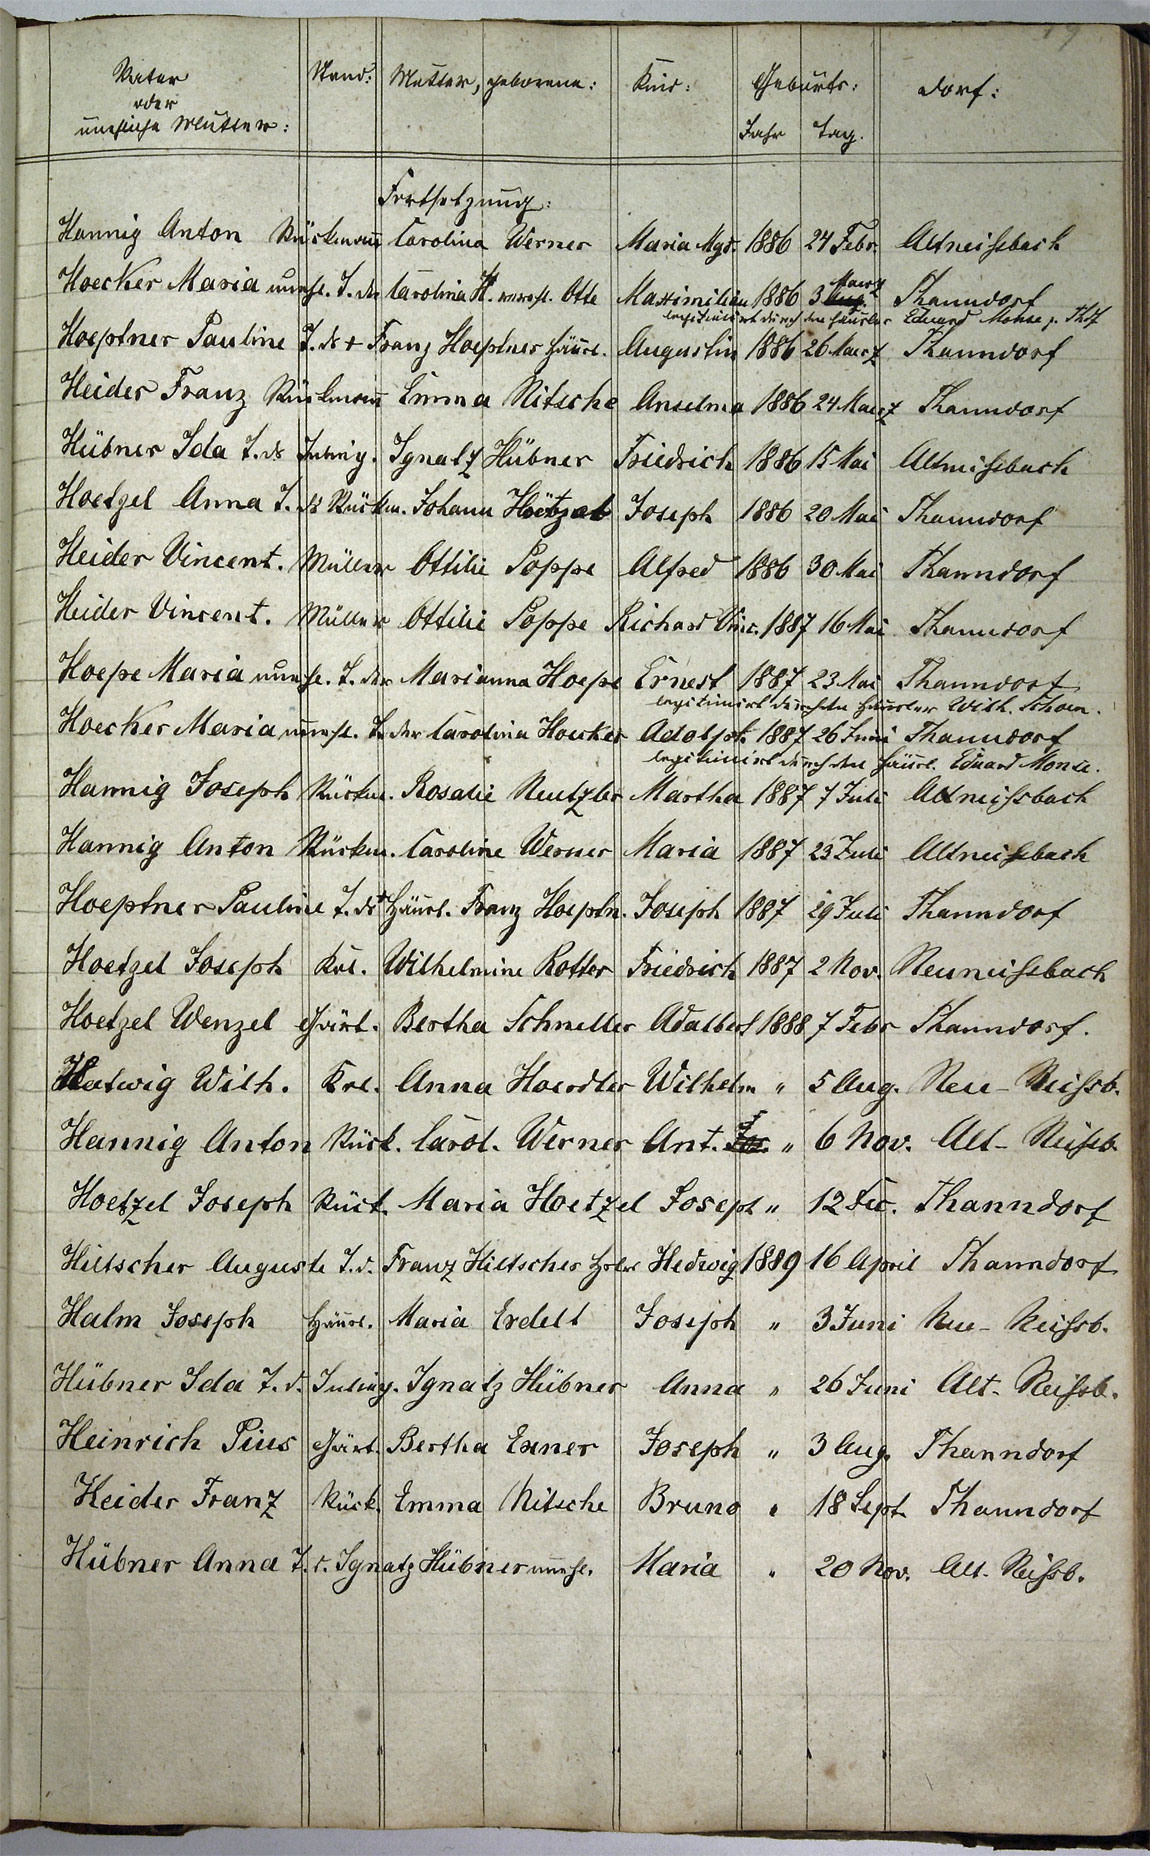 19
Vater Stand: Mutter, geborene: Kind: Geburts: Dorf:
oder
uneheliche Mutter: Jahr Tag.
Fortsetzung:
Hannig Anton Stückmann Carolina Werner Maria Mgd. 1886 24 Febr. Altneißbach
Hoecker Maria unehl. T. der Carolina H. verehl. Otte Maximilian 1886 3 Maerz Thanndorf
legitimirt durch den Häusler Eduard Mohse z. Thdf
Hoeptner Pauline T. ds + Franz Hoeptner Häusl. Augustin 1886 26 Maerz Thanndorf
Heider Franz Stückmann Emma Nitsche Anselma 1886 24 Maerz Thanndorf
Hübner Ida T. ds Inlieg. Ignatz Hübner Friedrich 1886 15 Mai Altneißbach
Hoetzel Anna T. ds Stückm. Johann Hötzel Joseph 1886 20 Mai Thanndorf
Heider Vincent. Müller Ottilie Poppe Alfred 1886 30 Mai Thanndorf
Heider Vincent. Müller Ottilie Poppe Richard Vinc. 1887 16 Mai Thanndorf
Hoepe Maria unehe. T. der Marianna Hoepe Ernest 1887 23 Mai Thanndorf
legitimirt durch den Häusler Wilh. Schoen.
Hoecker Maria unehl. T. der Carolina Hoecker Adolph 1887 26 Juni Thanndorf
legitimirt durch den Häusl. Eduard Monse.
Hannig Joseph Stückm. Rosalie Neutzler Martha 1887 7 Juli Altneißbach
Hannig Anton Stückm. Caroline Werner Maria 1887 23 Juli Altneißbach
Hoeptner Pauline T. ds + Häusl. Franz Hoeptn. Joseph 1887 29 Juli Thanndorf
Hoetzel Joseph Kol. Wilhelmine Rotter Friedrich 1887 2 Nov. Neuneißbach
Hoetzel Wenzel Gärt. Bertha Schneller Adalbert 1888 7 Febr Thanndorf.
Hatwig Wilh. Kol. Anna Haerdler Wilhelm " 5 Aug. Neu-Neißb.
Hannig Anton Stück. Carol. Werner Ant. " 6 Nov. Alt-Neißb.
Hoetzel Joseph Stück. Maria Hoetzel Joseph " 12 Dec. Thanndorf
Hiltscher Auguste T. d. Franz Hiltscher Hslr Hedwig 1889 16 April Thanndorf
Halm Joseph Häusl. Maria Exdelt Joseph " 3 Juni Neu-Neißb.
Hübner Ida T. d. Inlieg. Ignatz Hübner Anna " 26 Juni Alt-Neißb.
Heinrich Pius Gärt. Bertha Exner Joseph " 3 Aug. Thanndorf
Heider Franz Stück. Emma Nitsche Bruno " 18 Sept. Thanndorf
Hübner Anna T. d. Ignatz Hübner unehl. Maria " 20 Nov. Alt-Neißb.